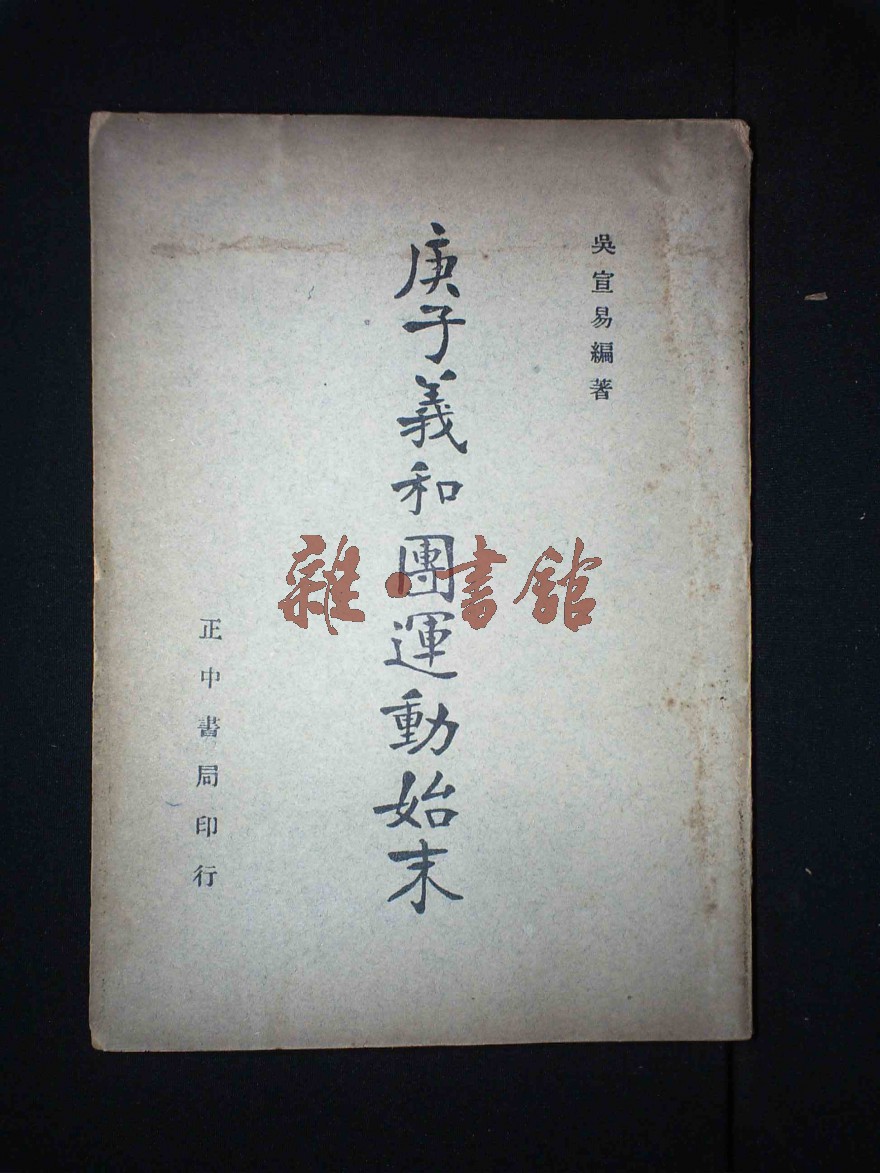 吳宣易編著
庚子義和團運動始末
正中書局印行
雜·書館